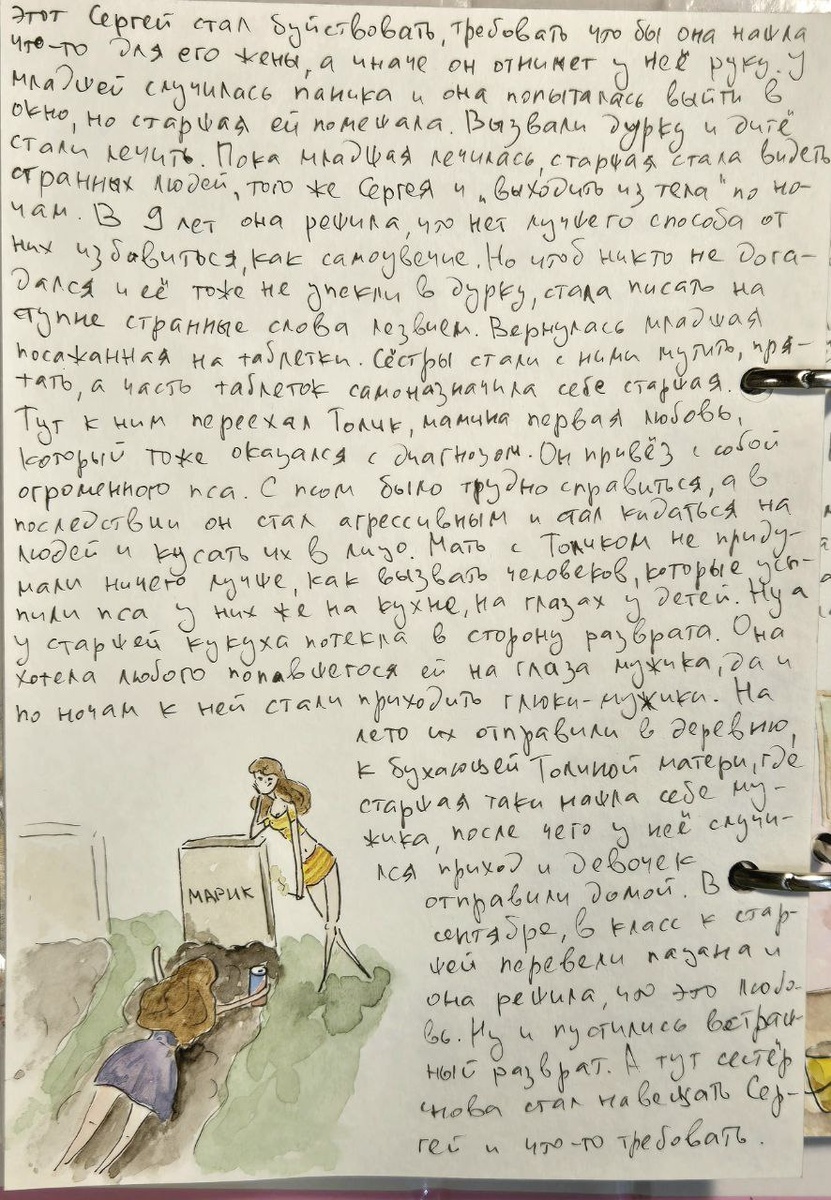 этот Сергей стал буйствовать, требовать что бы она нашла
что-то для его жены, а иначе он отнимет у неё руку. У
младшей случилась паника и она попыталась выйти в
окно, но старшая ей помешала. Вызвали дурку и дитё
стали лечить. Пока младшая лечилась, старшая стала видеть
странных людей, того же Сергея и „выходить из тела" по но-
чам. В 9 лет она решила, что нет лучшего способа от
них избавиться, как самоувечие. Но чтоб никто не дога-
дался и её тоже не упекли в дурку, стала писать на
ступне странные слова лезвием. Вернулась младшая
посажанная на таблетки. Сёстры стали с ними мутить, пря-
тать, а часть таблеток самоназначила себе старшая.
Тут к ним переехал Толик, мамина первая любовь,
который тоже оказался с диагнозом. Он привёз с собой
огроменного пса. С псом было трудно справиться, а в
последствии он стал агрессивным и стал кидаться на
людей и кусать их в лицо. Мать с Толиком не приду-
мали ничего лучше, как вызвать человеков, которые усы-
пили пса у них же на кухне, на глазах у детей. Ну а
у старшей кукуха потекла в сторону разврата. Она
хотела любого попавшегося ей на глаза мужика, да и
по ночам к ней стали приходить глюки-мужики. На
лето их отправили в деревню,
к бухающей Толиной матери, где
старшая таки нашла себе му-
жика, после чего у неё случи-
лся приход и девочек
отправили домой. В
сентябре, в класс к стар-
шей перевели пацана и
она решила, что это любо-
вь. Ну и пустились в страш-
ный разврат. А тут сестёр
снова стал навещать Сер-
гей и что-то требовать.
МАРИК